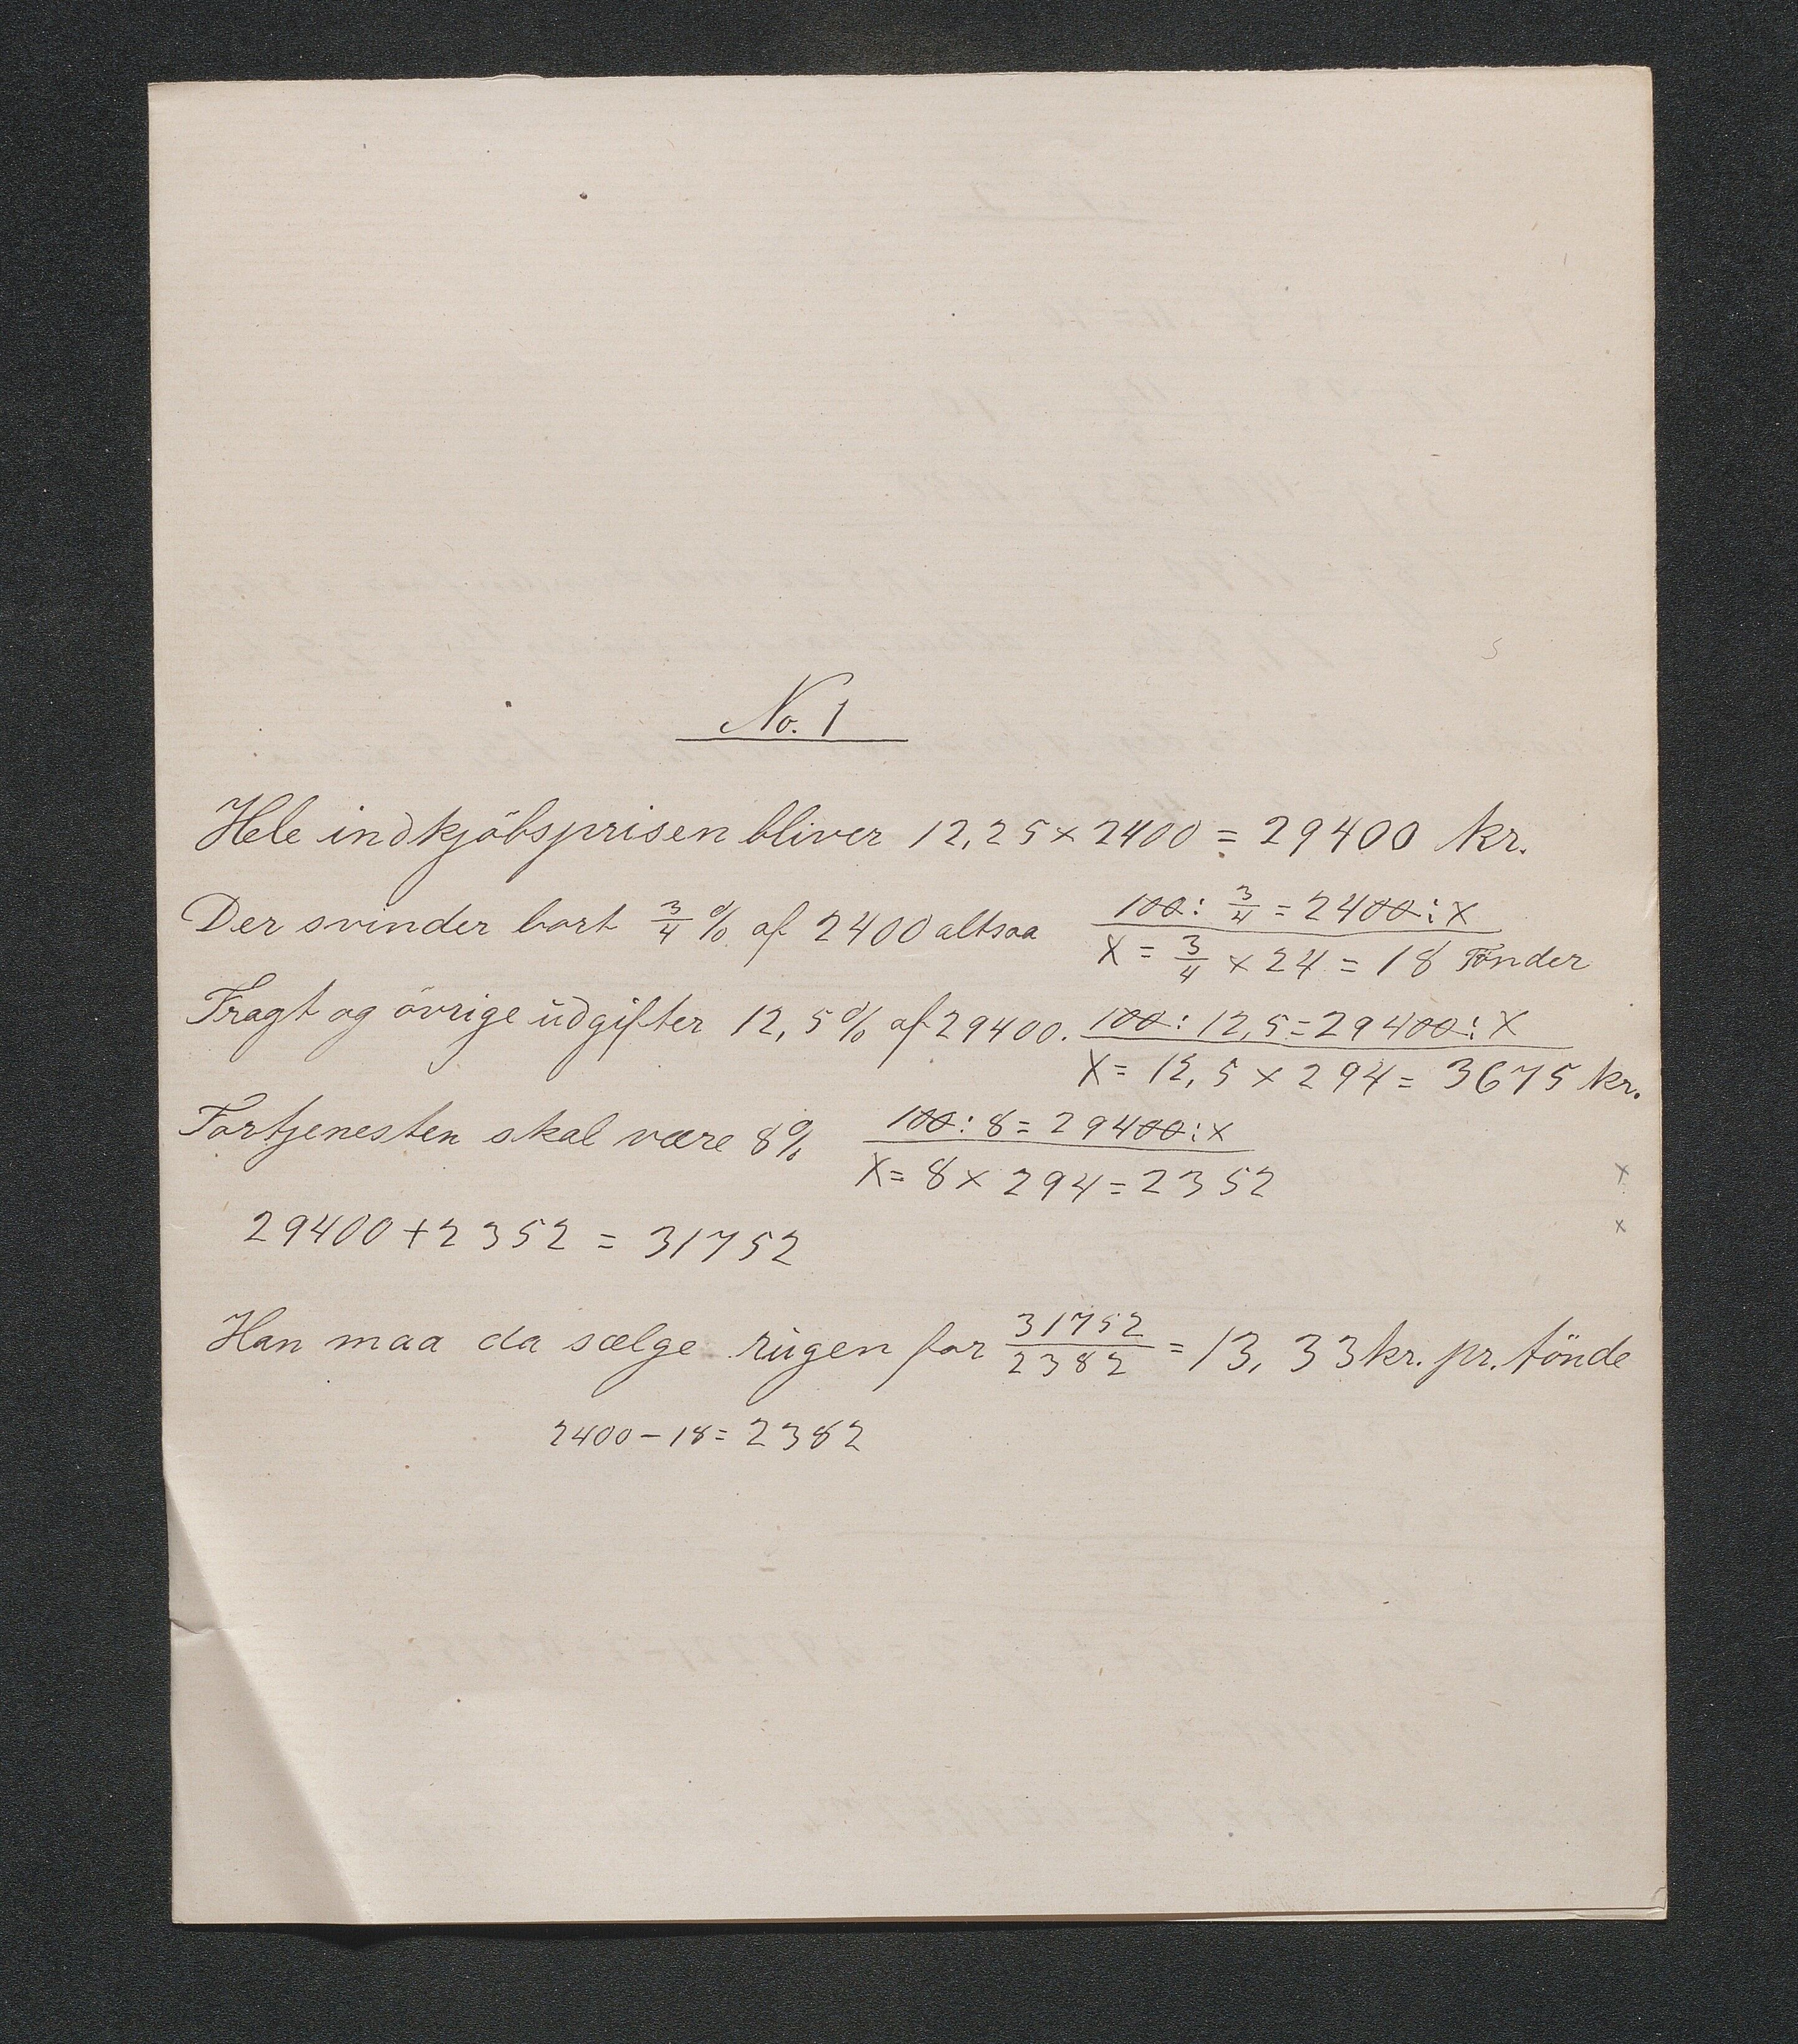 No. 1
Hele indkjöbsprisen bliver 12,25 × 2400 = 29400 kr.
Der svinder bort 3/4 % af 2400 altsaa 100 : 3/4 = 2400 : x
x = 3/4 × 24 = 18 Tönder
Fragt og övrige udgifter 12,5% af 29400. 100 : 12,5 = 29400 : x
x = 12,5 × 294 = 3675 kr.
Fortjenesten skal være 8% 100 : 8 = 29400 : x
x = 8 × 294 = 2352
x
29400 + 2352 = 31752
x
Han maa da sælge rugen for 31752/2382 = 13,33 kr. pr. tönde
2400 – 18 = 2382